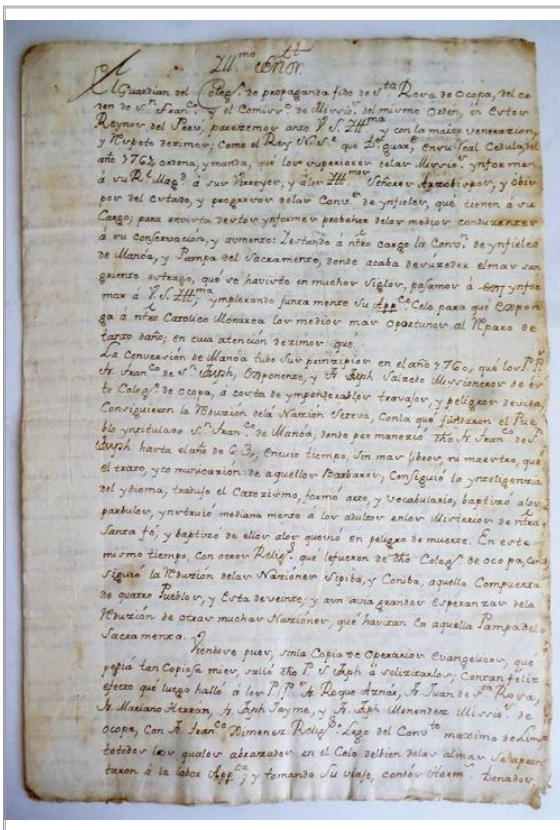 Ill.mo Señor
El Guardian del Coleg.o de propaganda fide de S.ta Rosa de Ocopa, del or
den de S.n Fran.co y el Comiss.o de Missio.s del mismo Orden, en estos
Reynos del Perú, parezemos ante V. S. Ill.ma y con la maior veneracion,
y Respeto dezimos; Como el Rey N. S.r que D.s gua.e en su Real Cedula, del
año 1762, ordena, y manda, que los superiores delas Missio.s ynformen
á su R.l Mag.d á sus Virreyes, y alos Ill.mos Señores Arzobispos, y Obis
pos del estado, y progresos delas Conv.s de ynfieles, que tienen á su
Cargo; para en vista destos ynformes probeher delos medios conduzentes
á su conservazion, y aumento: Y estando á ntro cargo la Conv.n de ynfieles
de Manóa, y Pampa del Sacramento, donde acaba de suzeder el mas san
griento estrago, que se ha visto en muchos siglos, pasamos á ynfor
mar á V. S. Ill.ma; ymplorando juntamente su App.co Celo para que expon
ga á ntro Catolico Monarca los medios mas oportunos al Reparo de
tanto daño; en cuia atención dezimos: que
La Conversión de Manóa tubo sus prinzipios en el año 1760, que los P.P.
fr. Fran.co de S.n Joseph, y fr. Joseph Salzedo Missioneros de es
te Coleg.o de ocopa, á costa de ymponderables trabajos, y peligros de vida,
Consiguieron la Reduzion dela Nazion Seteva, Con la que fundaron el Pue
blo yntitulado S.n Fran.co de Manóa, donde permanezió dho fr. Fran.co de S.n
Joseph hasta el año de 63, en cuio tiempo, sin mas libros, ni maestro, que
el trato, y comunicazión de aquellos Barbaros, Consiguió la ynteligenzia
del ydioma, tradujo el Catezismo, formó arte, y vocabulario, baptizó alos
parbulos, ynstruió mediana mente á los adultos enlos Misterios de ntra
Santa fé, y baptizó de ellos alos que vió en peligro de muerte. En este
mismo tiempo, con otros Relig.s que le fueron de dho Coleg.o de ocopa, con
siguió la Reduzión delas Naziones Sipiba, y Coniba, aquella Compuesta
de quatro Pueblos, y esta de veinte; y aun avia grandes esperanzas dela
Reduzión de otras muchas Naziones, que havitan en aquella Pampa del
Sacramento.
Viendose pues, sin la Copia de Operarios evangelicos, que
pedia tan Copiosa mies, salió dho P. S. Joseph á solizitarlos; Con tan feliz
efecto que luego halló á los P.P. fr. Roque Aznar, fr. Juan de S.ta Rosa,
fr. Mariano Herrán, fr. Joseph Jayme, y fr. Joseph Menendez Missio.s de
ocopa, con fr. Fran.co Ximenez Relig.o Lego del Conv.to maximo de Lima
todos los quales abrazados en el Celo del bien delas almas se apres
taron á la labor App.ca; y tomando su viaje, con dos Herm.s Donados,